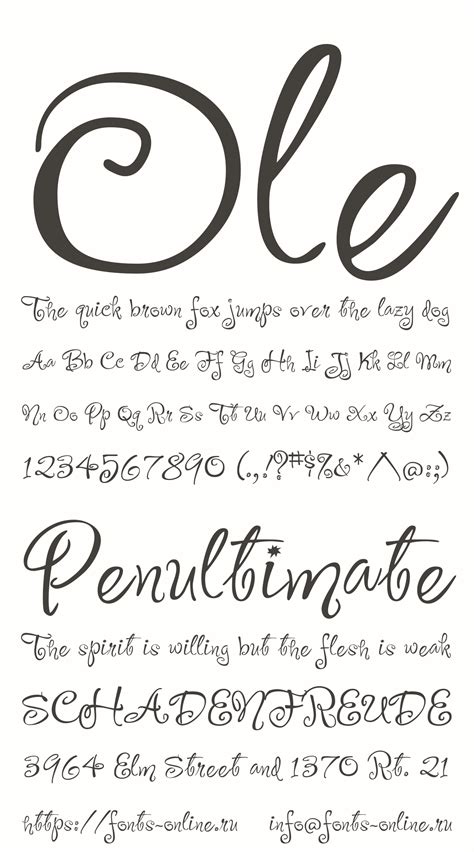 Ole
The quick brown fox jumps over the lazy dog
Aa Bb Cc Dd Ee Ff Gg Hh Ii Jj Kk Ll Mm
Nn Oo Pp Qq Rr Ss Tt Uu Vv Ww Xx Yy Zz
1234567890 (.,!?#$%&*/\@:;)
Penultimate
The spirit is willing but the flesh is weak
SCHADENFREUDE
3964 Elm Street and 1370 Rt. 21
https://fonts-online.ru info@fonts-online.ru